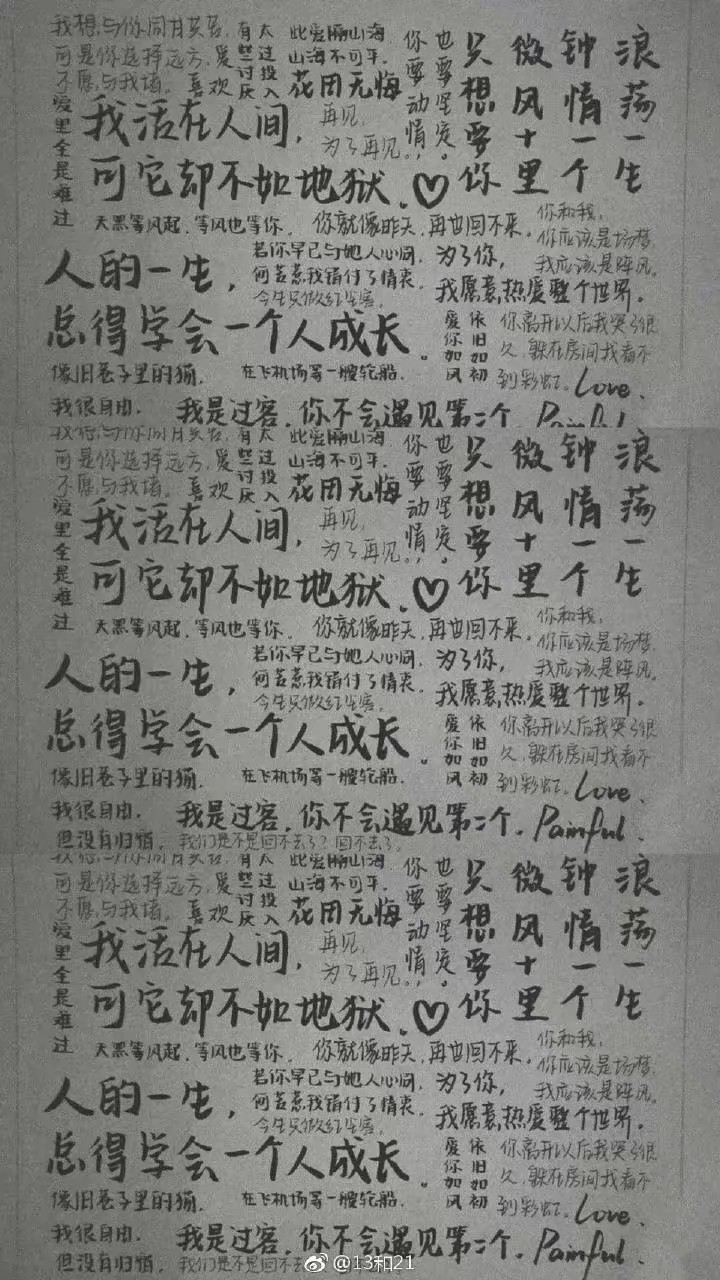 我想与你同甘共苦,
可是你选择远方,
不愿与我堵。
爱喜欢
有些讨厌
太过投入
此爱隔山海
山海不可平。
无悔
你要动情,
也要坚定,
只想要你
微风十里
钟情一个
浪荡一生
爱里全是难过
我活在人间,
可它却不如地狱。♡
再见,
为了再见。
天黑等风起,等风也等你。
你就像昨天,再也回不来。
你和我,
你应该是场梦,
我应该是阵风。
人的一生,
总得学会一个人成长。
若你早已与她人心同,
何苦惹我错付了情衷。
今生只做红尘客。
为了你,
我愿意,热爱整个世界。
爱你如风
依旧如初
你离开以后我哭了很
久,躲在房间找看不
到彩虹。Love.
像旧巷子里的猫,
在飞机场等一艘轮船。
我很自由,
我是过客,你不会遇见第二个。Painful.
我想与你同甘共苦,
可是你选择远方,
不愿与我堵。
爱喜欢
有些讨厌
太过投入
此爱隔山海
山海不可平。
无悔
你要动情,
也要坚定,
只想要你
微风十里
钟情一个
浪荡一生
爱里全是难过
我活在人间,
可它却不如地狱。♡
再见,
为了再见。
天黑等风起,等风也等你。
你就像昨天,再也回不来。
你和我,
你应该是场梦,
我应该是阵风。
人的一生,
总得学会一个人成长。
若你早已与她人心同,
何苦惹我错付了情衷。
今生只做红尘客。
为了你,
我愿意,热爱整个世界。
爱你如风
依旧如初
你离开以后我哭了很
久,躲在房间找看不
到彩虹。Love.
像旧巷子里的猫,
在飞机场等一艘轮船。
我很自由,
但没有归宿。
我是过客,你不会遇见第二个。Painful.
我们是不是回不去了?回不去了。
我想与你同甘共苦,
可是你选择远方,
不愿与我堵。
爱喜欢
有些讨厌
太过投入
此爱隔山海
山海不可平。
无悔
你要动情,
也要坚定,
只想要你
微风十里
钟情一个
浪荡一生
爱里全是难过
我活在人间,
可它却不如地狱。♡
再见,
为了再见。
天黑等风起,等风也等你。
你就像昨天,再也回不来。
你和我,
你应该是场梦,
我应该是阵风。
人的一生,
总得学会一个人成长。
若你早已与她人心同,
何苦惹我错付了情衷。
今生只做红尘客。
为了你,
我愿意,热爱整个世界。
爱你如风
依旧如初
你离开以后我哭了很
久,躲在房间找看不
到彩虹。Love.
像旧巷子里的猫,
在飞机场等一艘轮船。
我很自由,
但没有归宿。
我是过客,你不会遇见第二个。Painful.
我们是不是回不去
@13和21